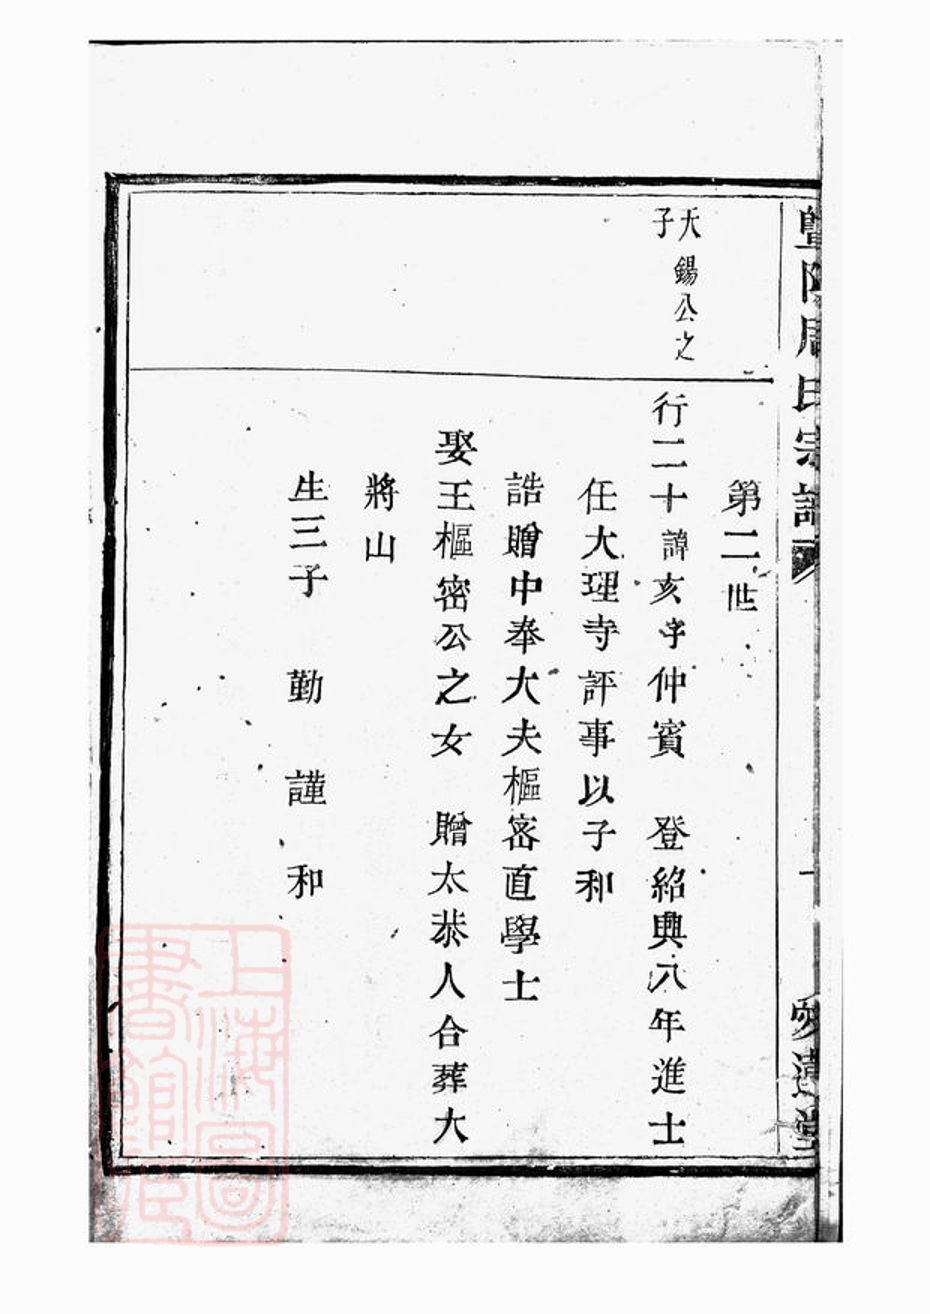 暨陽周氏宗譜
愛蓮堂
第二世
天錫公之
子
行二十諱亥字仲賓　登紹興八年進士
任大理寺評事以子和
誥贈中奉大夫樞密直學士
娶王樞密公之女　贈太恭人合葬大
將山
生三子　勤　謹　和
上海圖
書館藏